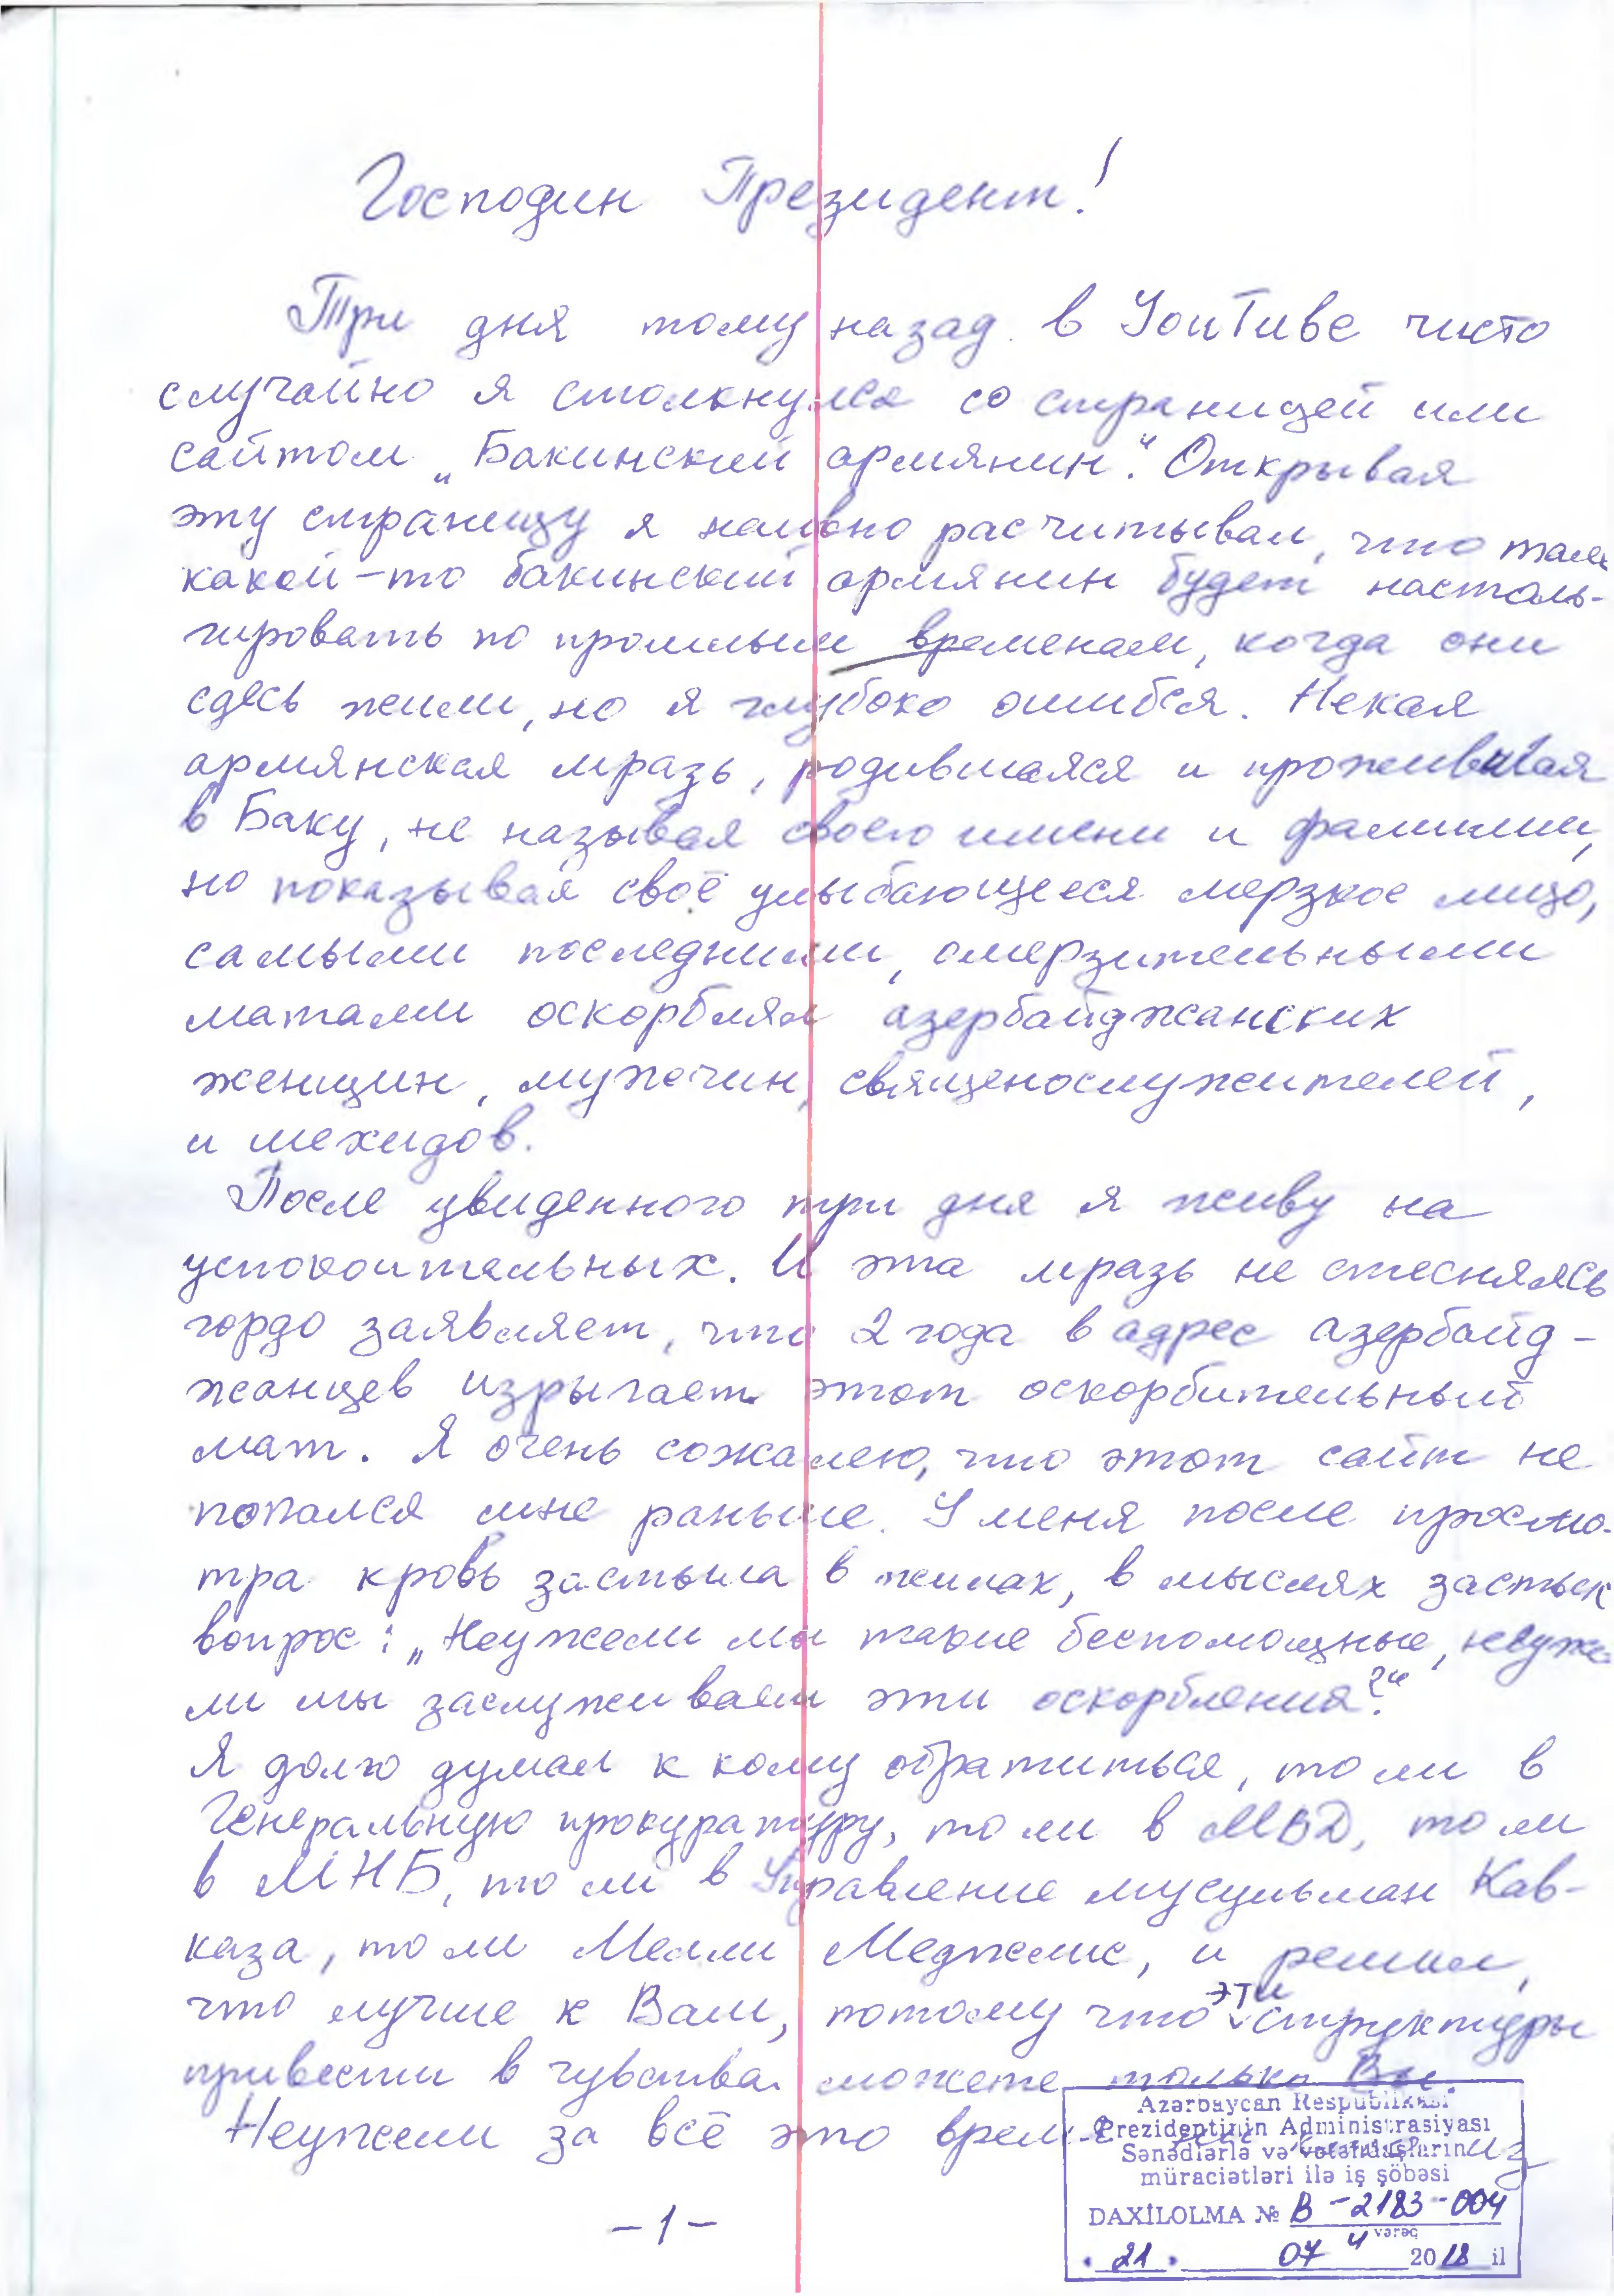 Господин Президент!
Три дня тому назад в YouTube чисто
случайно я столкнулся со страницей или
сайтом „Бакинский армянин“. Открывая
эту страницу я наивно расчитывал, что там
какой-то бакинский армянин будет насталь-
гировать по прошлым временам, когда они
сдесь жили, но я глубоко ошибся. Некая
армянская мразь, родившаяся и проживавшая
в Баку, не называя своего имени и фамилии,
но показывая своё улыбающееся мерзкое лицо,
самыми последними, омерзительными
матами оскорблял азербайджанских
женщин, мужчин, священослужителей,
и шехидов.
После увиденного три дня я живу на
успокоительных. И эта мразь не стесняясь
гордо заявляет, что 2 года в адрес азербайд-
жанцев изрыгает этот оскорбительный
мат. Я очень сожалею, что этот сайт не
попался мне раньше. У меня после просмо-
тра кровь застыла в жилах, в мыслях застыл
вопрос: „Неужели мы такие беспомощные, неуже-
ли мы заслуживаем эти оскорбления?“
Я долго думал к кому обратиться, то ли в
Генеральную прокуратуру, то ли в МВД, то ли
в МНБ, то ли в Управление мусульман Кав-
каза, то ли Милли Меджлис, и решил,
что лучше к Вам, потому что эти структуры
привести в чувства можете только Вы.
Неужели за всё это время из
-1-
Azərbaycan Respublikası
Prezidentinin Administrasiyası
Sənədlərlə və vətəndaşların
müraciətləri ilə iş şöbəsi
DAXİLOLMA № B-2183-004
4 vərəq
21 07 2018 il